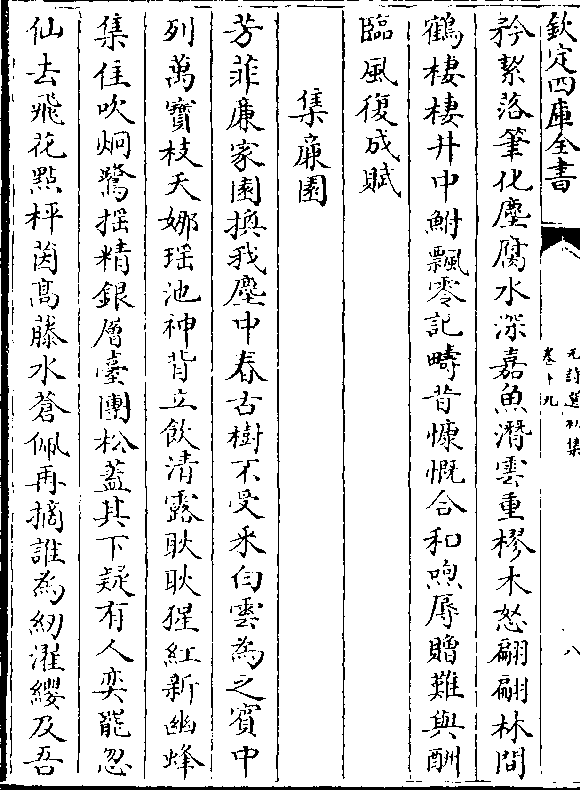 欽定四庫全書
元詩選初集
卷十九
八
矜絜落筆化塵腐水深嘉魚潛雲重樛木怒翩翩林間
鶴棲棲井中鮒飄零記疇昔慷慨合和呴辱贈難與酬
臨風復成賦
集廉園
芳菲廉家園換我塵中春古樹不受采白雲為之賓中
列萬寶枝夭娜瑶池神背立飲清露耿耿猩紅新幽蜂
集佳吹炯鷺揺精銀層臺團松蓋其下疑有人奕罷忽
仙去飛花點枰茵髙藤水蒼佩再摘誰為紉濯纓及吾